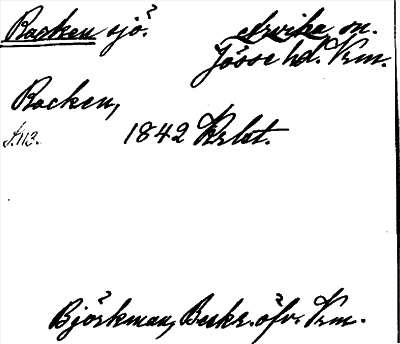 Racken sjö. Arvika sn.
Jösse hd. Vrm.
Racken,
s. 113. 1842 Krbt.
Björkman, Beskr. öfv. Vrm.